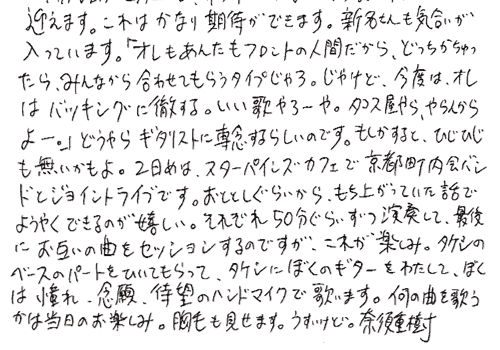 迎えます。これはかなり期待ができます。新名さんも気合いが
入っています。「オレもあんたもフロントの人間だから、どっちかちゅっ
たら、みんなから合わせてもらうタイプじゃろ。じゃけど、今度は、オレ
はバッキングに徹する。いい歌やろーや。タンス屋やら、やらんから
よー。」どうやらギタリストに専念するらしいのです。もしかすると、ひじひじ
も無いかもよ。2日めは、スターパインズカフェで京都町内会バン
ドとジョイントライブです。おととしぐらいから、もち上がっていた話で
ようやくできるのが嬉しい。それぞれ50分ぐらいずつ演奏して、最後
にお互いの曲をセッションするのですが、これが楽しみ。タケシの
ベースのパートをひいてもらって、タケシにぼくのギターをわたして、ぼく
は憧れ、念願、待望のハンドマイクで歌います。何の曲を歌う
かは当日のお楽しみ。胸毛も見せます。うすいけど。奈須重樹